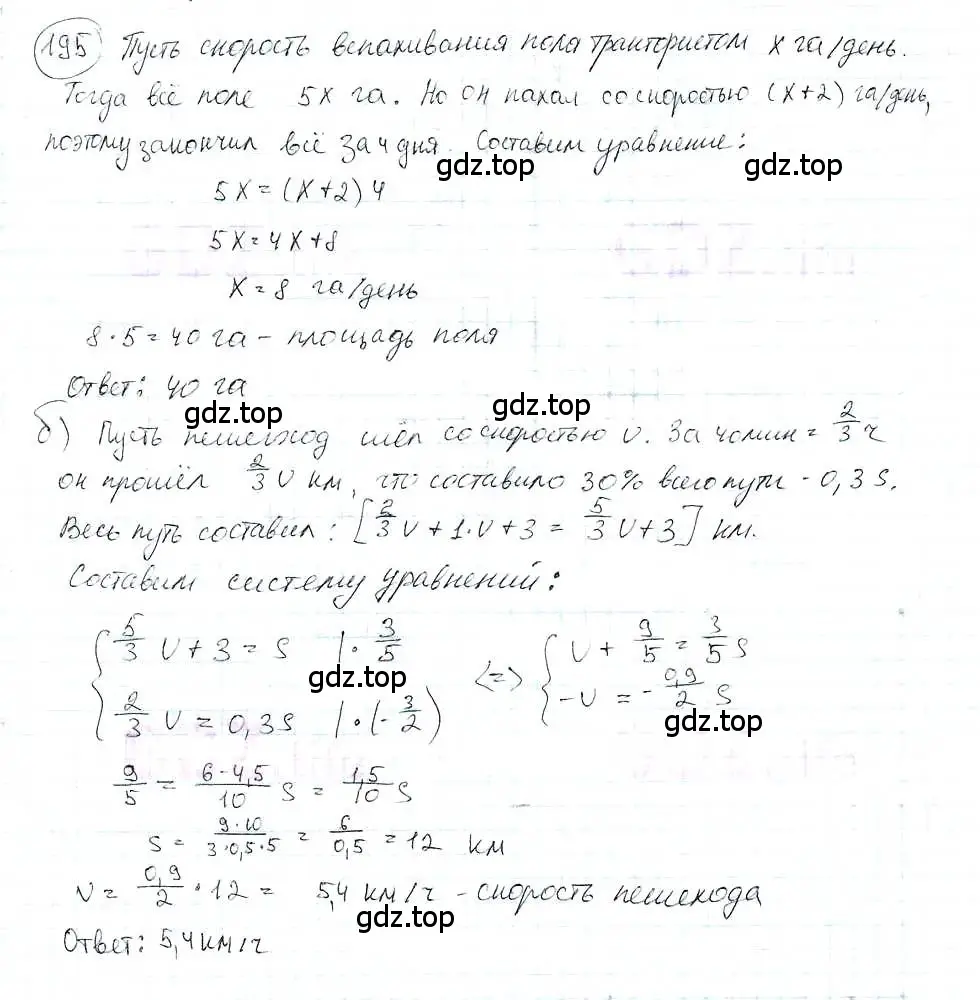 195 Пусть скорость вспахивания поля трактористом x га/день.
Тогда всё поле 5x га. Но он пахал со скоростью (x+2) га/день,
поэтому закончил всё за 4 дня. Составим уравнение:
gdz.top gdz.top
5x = (x+2) 4
5x = 4x+8
x = 8 га/день
8 · 5 = 40 га – площадь поля
Ответ: 40 га
gdz.top gdz.top
б) Пусть пешеход шёл со скоростью v. За 40 мин = 2/3 ч
он прошёл 2/3 v км, что составило 30% всего пути - 0,3 s.
Весь путь составил: [2/3 v + 1·v + 3 = 5/3 v + 3] км.
Составим систему уравнений:
{ 5/3 v + 3 = s | · 3/5 <=> { v + 9/5 = 3/5 s
gdz.top gdz.top
2/3 v = 0,3s | · (- 3/2) -v = - 0,9/2 s
9/5 = 6-4,5/10 s = 1,5/10 s
s = 9·10/3·0,5·5 = 6/0,5 = 12 км
v = 0,9/2 · 12 = 5,4 км/ч – скорость пешехода
gdz.top
Ответ: 5,4 км/ч